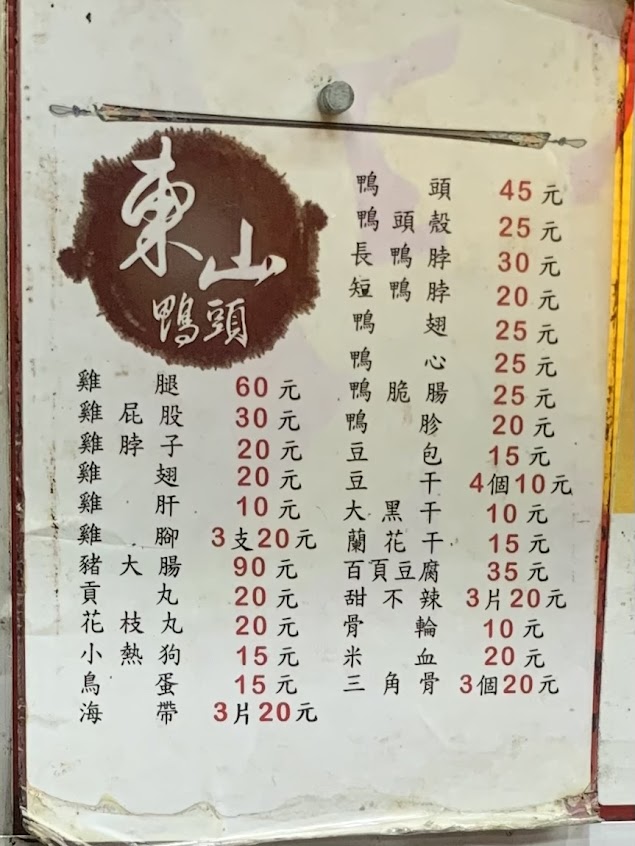 東山
鴨頭
鴨頭 45元
鴨頭殼 25元
長鴨脖 30元
短鴨脖 20元
鴨翅 25元
鴨心 25元
鴨脆腸 25元
鴨胗 20元
豆包 15元
豆干 4個10元
大黑干 10元
蘭花干 15元
百頁豆腐 35元
甜不辣 3片20元
骨輪 10元
米血 20元
三角骨 3個20元
雞腿 60元
雞屁股 30元
雞脖子 20元
雞翅 20元
雞肝 10元
雞腳 3支20元
豬大腸 90元
貢丸 20元
花枝丸 20元
小熱狗 15元
鳥蛋 15元
海帶 3片20元